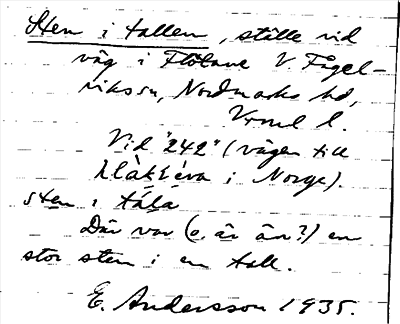 Sten i tallen, ställe vid
väg i Flötane V. Fågel-
viks sn, Nordmarks hd,
Vrml l.
Vid "242" (vägen till
i Norge).
sten i tåla
Där var (o. är än?) en
stor sten i en tall.
E. Andersson 1935.